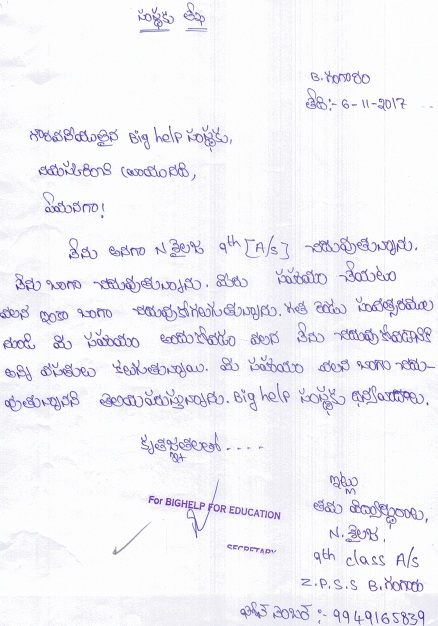 సంస్థకు లేఖ
B. గంగారం
తేది:- 6-11-2017
గౌరవనీయులైన Big help సంస్థకు,
నమస్కరించి వ్రాయునది,
ఏమనగా!
నేను అనగా N. శైలజ 9th [A/s] చదువుతున్నాను.
నేను బాగా చదువుతున్నాను. మీరు సహాయం చేయటం
వలన ఇంకా బాగా చదువుకోగలుగుతున్నాను. గత రెండు సంవత్సరముల
నుండి మీ సహాయం అందుకోవడం వలన నేను చదువుకోవడానికి
అన్ని వసతులు కలుగుతున్నాయి. మీ సహాయం వలన బాగా చదు-
వుతున్నానని తెలియపరుస్తున్నాను. Big help సంస్థకు ధన్యవాదాలు.
కృతజ్ఞతలతో ....
ఇట్లు
తమ విద్యార్థురాలు,
N. శైలజ.
9th class A/s
Z.P.S.S B. గంగారం
ఫోన్ నెంబర్ :- 9949165839
For BIGHELP FOR EDUCATION
SECRETARY